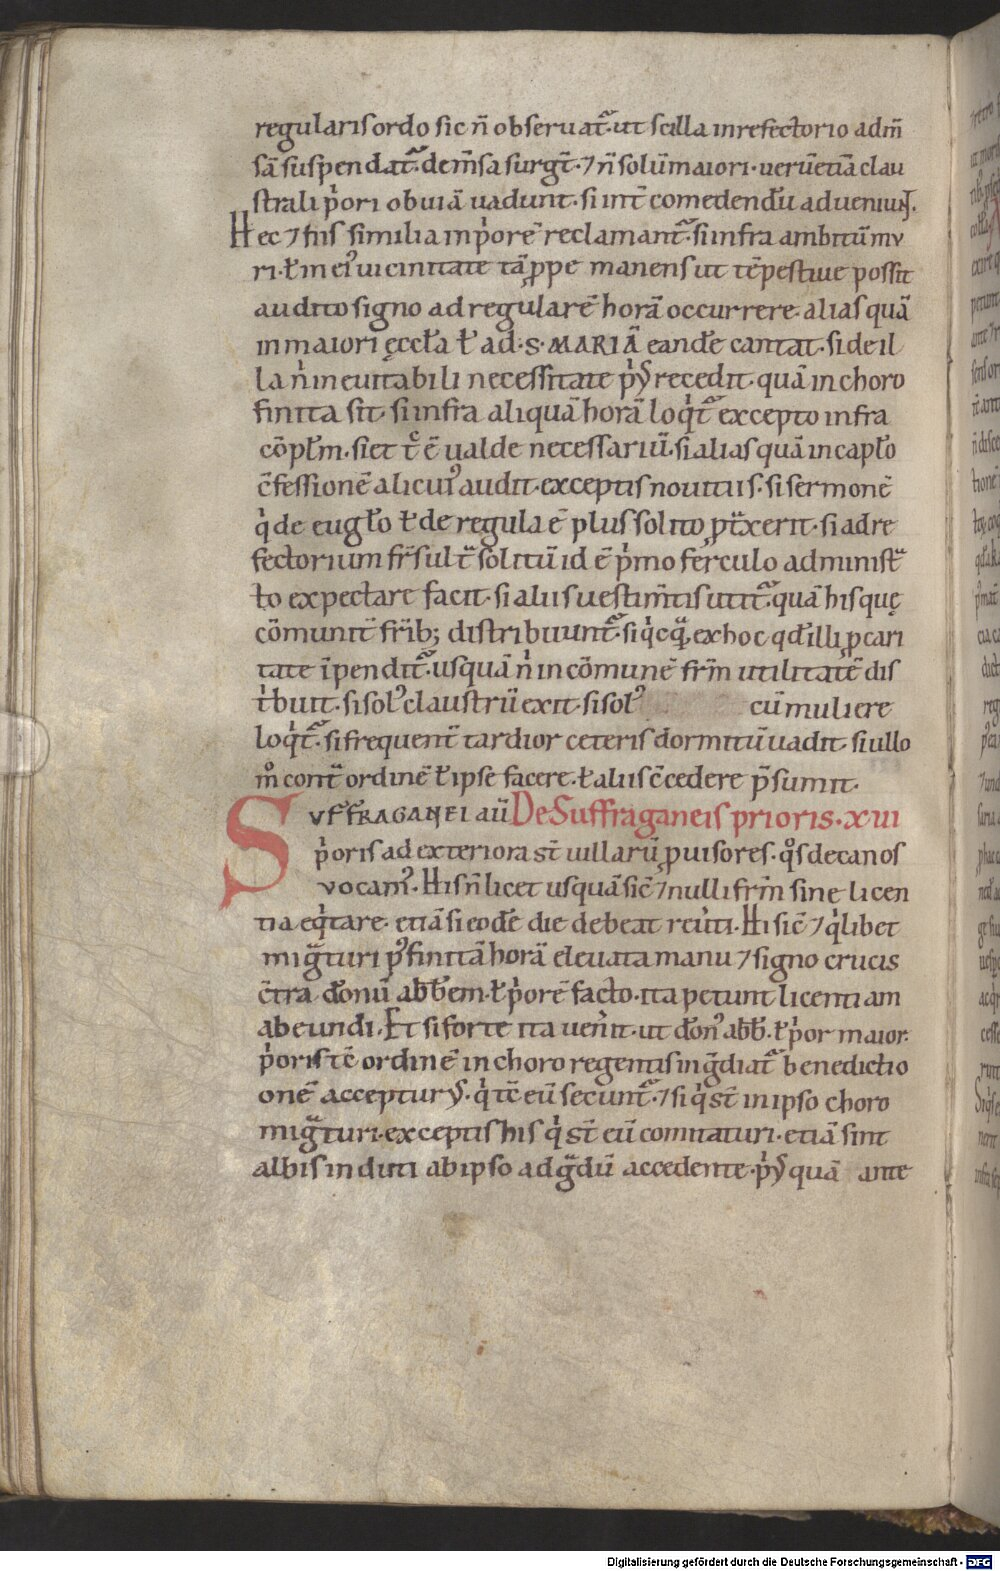 regularis ordo sic n̄ obseruat᷑. ut scilla in refectorio adm̄
sā suspendat᷑. de m̄sa surgt̄. ⁊ n̄ solū maiori. uerū etiā clau
strali p̍ori obuiā uadunt. si int̄ comedendū adueniunt.
Hec ⁊ his similia in p̍ore reclamant᷑. si infra ambitū mu
ri. ł in ei᷒ uicinitate tā ꝓpe manens ut tēpestiue possit
audito signo ad regularē horā occurrere. alias quā
in maiori ęccła ł ad. S. MARIĀ eandē cantat. si de il
la n̍ ineuitabili necessitate p̍us recedit. quā in choro
finita sit. si infra aliquā horā loq̍t᷑ excepto infra
cōpłm. si et tͨ ē ualde necessariū. si alias quā in capło
c̄fessionē alicui᷒ audit. exceptis nouitiis. si sermonē
q̍ de eugło ł de regula ē plus solito ꝓt̃xerit. si ad re
fectorium fr̄s ult̃ solitū id ē p̍mo ferculo administ̃
to expectare facit. si aliis uestim̄tis utit᷑. quā his quę
cōmunit̄ fr̄ib; distribuunt᷑. si q̍cq̃ ex hoc qd̄ illi ꝑ cari
tate īpendit᷑. usquā n̍ in cōmunē fr̄m utilitatē dis
t̍buit. si sol᷒ claustrū exit. si sol᷒ cū muliere
loq̍t᷑. si frequent̄ tardior ceteris dormitū uadit. si ullo
m̊ cont̃ ordinē ł ipse facere. ł aliis c̄cedere p̄sumit.
SVFFRAGANEI aū De Suffraganeis prioris. XVII
p̍oris ad exteriora st̄ uillarū ꝓuisores. q̊s decanos
vocam᷒. His n̄ licet usquā sic̄ ⁊ nulli fr̄m sine licen
tia eq̍tare. etiā si eodē die debeat reu̍ti. Hi sic̄ ⁊ q̍libet
mig̃turi p᷒ finitā horā eleuata manu ⁊ signo crucis
c̄tra donū abb̄em. ł p̍orē facto. ita petunt licentiam
abeundi. Et si forte ita uen̍it. ut don᷒ abb̄. ł p̍or maior.
p̍oris tc̄ ordinē in choro regentis ing̃diat᷑ benedictio
onē accepturus. q̍ tc̄ eū secunt᷑. ⁊ si q̍ st̄ in ipso choro
mig̃turi. exceptis his q̍ st̄ eū comitaturi. etiā sint
albis induti ab ipso ad g̃dū accedente. p̍us quā ante
Digitalisierung gefördert durch die Deutsche Forschungsgemeinschaft - DFG